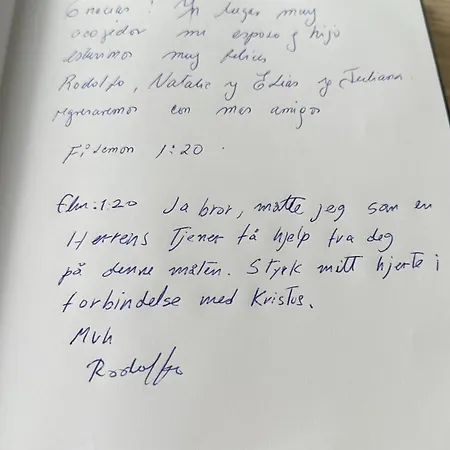 Gracias! Un lugar muy
acogedor mi esposo y hijo
estuvimos muy felices
Rodolfo, Natalie y Elias y Juliana
regresaremos con mas amigos
Filemon 1:20.
Flm.1:20 Ja bror, måtte jeg som en
Herrens Tjener få hjelp fra deg
på denne måten. Styrk mitt hjerte i
forbindelse med Kristus.
Mvh
Rodolfo